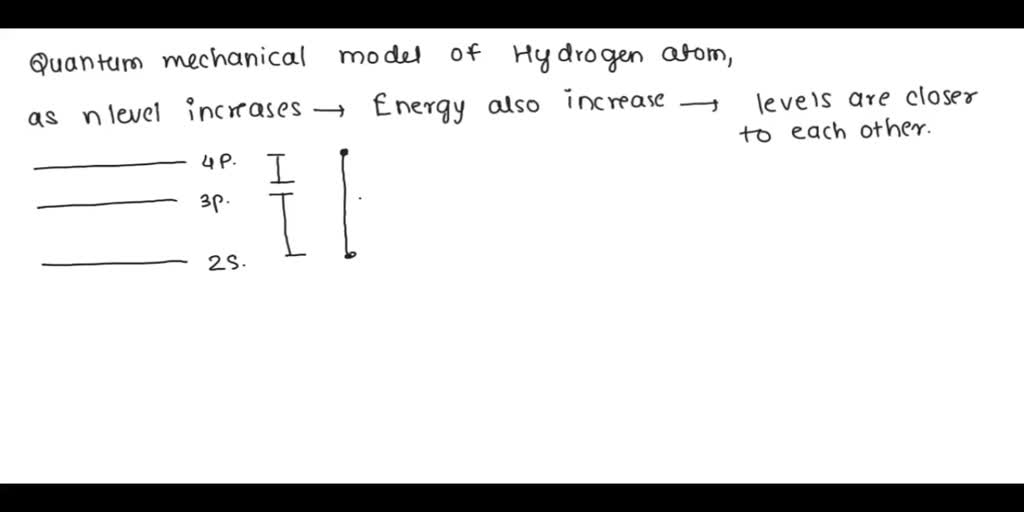 Quantum mechanical model of Hydrogen atom,
as n level increases → Energy also increase → levels are closer
to each other.
4P.
3p.
2S.